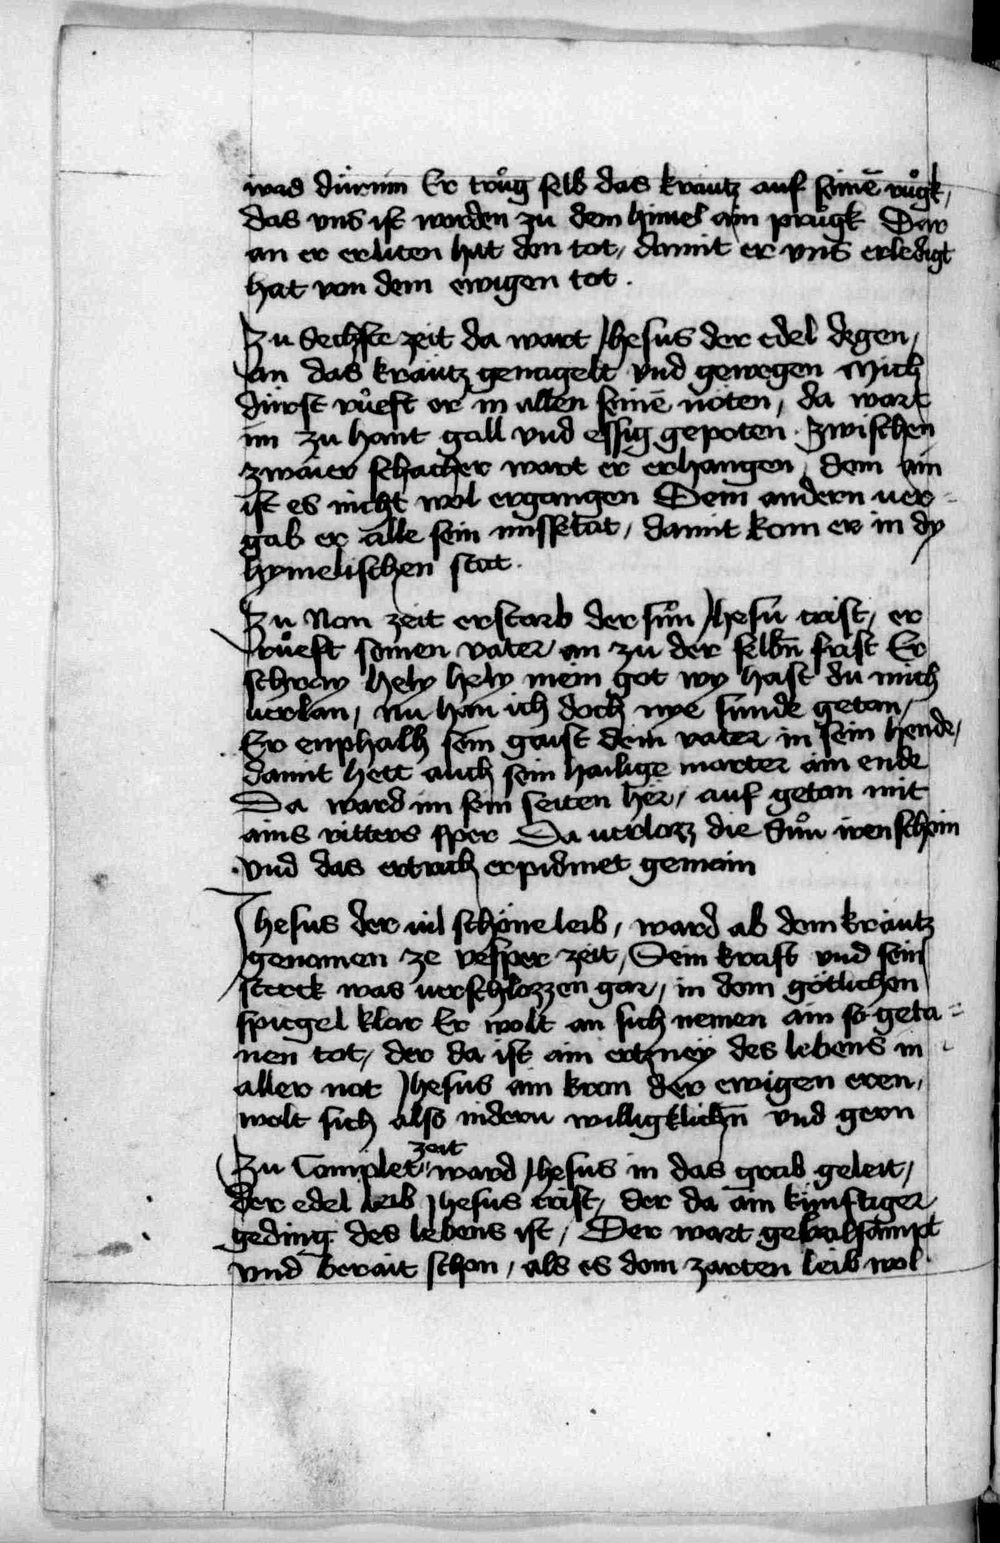 ward dürnin Er trůg selb das kräutz auf seinē růgk,
das vns ist worden zu dem himel ain průgk Dar
an er erliten hat den tot, damit er vns erledigt
hat von dem ewigen tot.
Zu Sechste zeit da wart Jhesus der edel degen,
an das kräutz genagelt vnd gewegen Mich
dürst růeft er in allen seinē nöten, da wart
im zu hant gall vnd essig gepoten. Zwischen
zwaier schacher wart er erhangen, dem ain
ist es nicht wol ergangen Dem andern uer-
gab er alle sein missetat, damit kom er in dy
hymelischen stat.
Zu Non zeit erstarb der sůn Jhesu crist, er
růeft seinen vater an zu der selbn̄ frist Er
schray hely hely mein got wy hast du mich
uerlan, nu han ich doch nye sunde getan,
Er enphalh sein gaist dem vater in sein hende,
damit hett auch sein hailige marter ain ende
Da ward im sein seiten her, auf getan mit
ains ritters sper Da uerlozz die Sůn iren schein
vnd das ertrich erpidmet gemein
Jhesus der uil schöne leib, ward ab dem kräutz
genomen ze vesper zeit, Sein kraft vnd sein
sterck was uerschlozzen gar, in dem götlichen
spiegel klar Er wolt an sich nemen ain so geta-
nen tot, der da ist ain ertzney des lebens in
aller not Jhesus ain kron der ewigen eren,
wolt sich also nidern willigklichn̄ vnd gern
Zu Complet zeit ward Jhesus in das grab geleit,
der edel leib Jhesus crist, der da ain künftiger
geding des lebens ist, Der wart gebalsampt
vnd berait schon, als es dem zarten leib wol